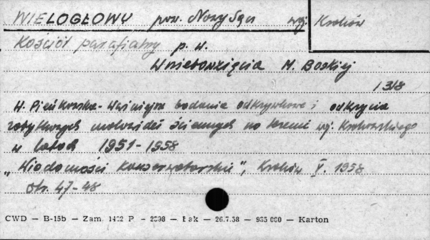 WIELOGŁOWY pow. Nowy Sącz woj. Kraków
Kościół parafialny p. w.
Wniebowzięcia M. Boskiej
1318
H. Pieńkowska - badania odkrywkowe i odkrycia
zabytkowych malowideł ściennych na terenie woj. Krakowskiego
w latach 1951-1958
„Wiadomości konserwatorskie", Kraków V. 1958
str. 47-48
CWD — B-15b — Zam. 1412 P. - 2530 — Łak — 26.7.58 - 935 000 — Karton